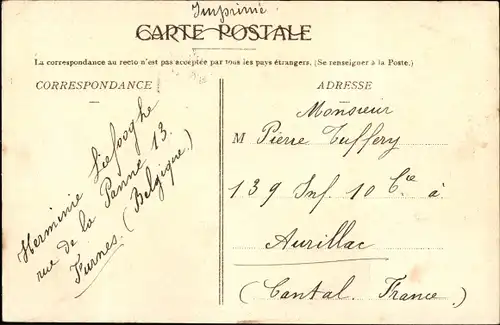 Imprimé
CARTE POSTALE
La correspondance au recto n'est pas acceptée par tous les pays étrangers. (Se renseigner à la Poste.)
CORRESPONDANCE
Herminie Liefooghe
rue de la Panne 13.
Furnes. (Belgique.)
ADRESSE
Monsieur
M Pierre Tuffery
139 Inf. 10 Cie à
Aurillac
(Cantal. France)